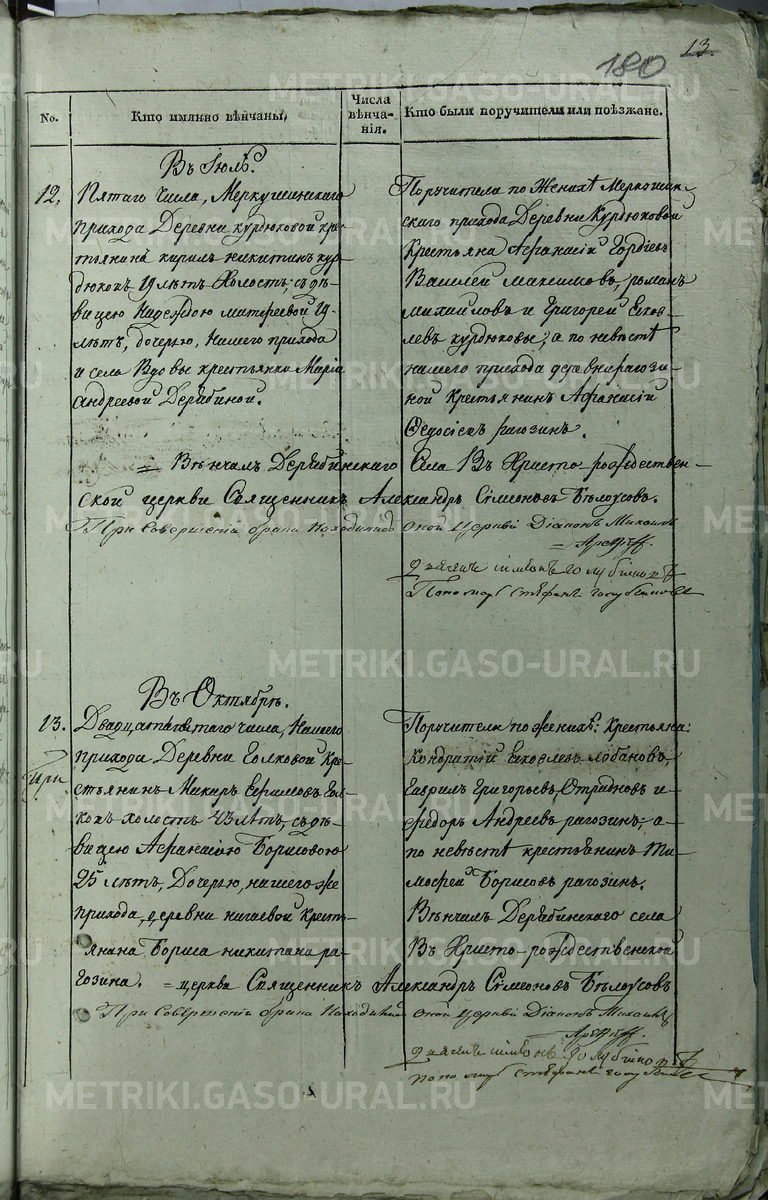 13.
180
No.
Кто имянно вѣнчаны.
Числа вѣнчанія.
Кто были поручители или поѣзжане.
Въ Іюлѣ.
12.
Пятаго Числа, Меркушинскаго
прихода Деревни курдюковой кре-
стьянинъ кирилъ никитинъ кур-
дюковъ 19 лѣтъ Холостъ; съ дѣ-
вицею Надеждою матфеевой 19-
лѣтъ, дочерью, Нашего прихода
и села Вдовы крестьянки Маріи
Андреевой Дерябиной.
Поручители по Женихѣ Меркушин-
скаго прихода Деревни Курдюковой
Крестьяна Афанасій Гордѣевъ
Василей Максимовъ, романъ
михаиловъ и Григорей Еков-
левъ курдюковы; а по невѣстѣ
нашего прихода деревни рагози-
ной Крестьянинъ Афанасій
Федосѣевъ рагозинъ.
= Вѣнчалъ Дерябинскаго Села Въ Христо-рождествен-
ской церкви Священникъ Александръ Симеоновъ Бѣлоусовъ.
При Совершеніи брака Находились оной церкви Діаконъ Михаилъ
Арефьев.
Пономарь Стефанъ
Въ Октябрѣ.
13.
При
Двадцать пятаго числа, Нашего
прихода Деревни Голковой Кре-
стьянинъ Макаръ Ефимовъ Гол-
ковъ холостъ 23 лѣтъ, съ дѣ-
вицею Афанасіею Борисовою
25 лѣтъ, Дочерью, нашего же
прихода, деревни нигаевой Кресть-
янина Бориса никитина ра-
гозина.
Поручители по женихѣ: Крестьяна:
Кондратій Ековлевъ лобановъ,
Гаврилъ Григорьевъ Отрадновъ и-
федоръ Андреевъ рагозинъ; а-
по невѣстѣ крестьянинъ Ти-
мофей Борисовъ рагозинъ.
Вѣнчалъ Дерябинскаго села
Въ Христо-рождественской
= церкви Священникъ Александръ Симеоновъ Бѣлоусовъ
При Совершеніи брака Находились оной церкви Діаконъ Михаилъ
Арефьев.
пономарь Стефанъ
METRIKI.GASO-URAL.RU